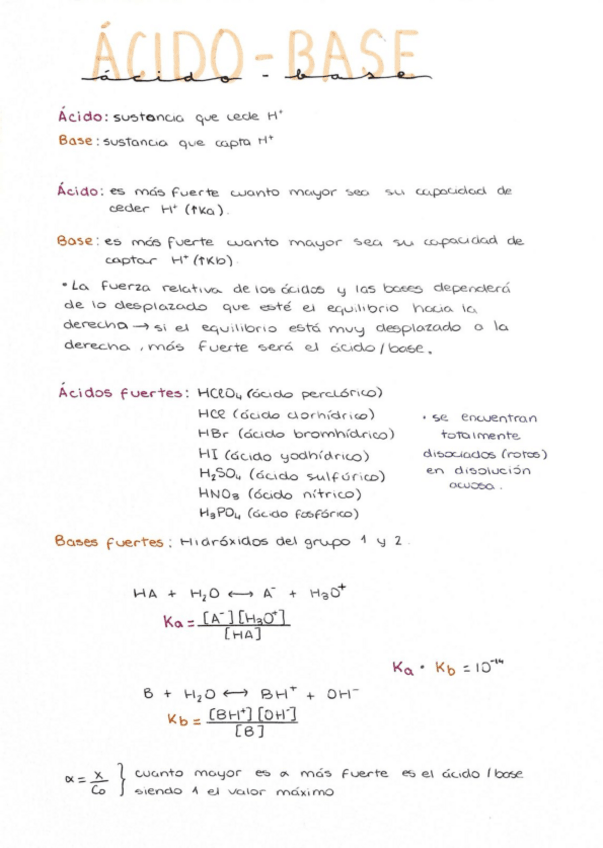 ÁCIDO-BASE
ácido - base
Ácido: sustancia que cede H⁺
Base: sustancia que capta H⁺
Ácido: es más fuerte cuanto mayor sea su capacidad de
ceder H⁺ (↑Ka).
Base: es más fuerte cuanto mayor sea su capacidad de
captar H⁺ (↑Kb)
• La fuerza relativa de los ácidos y las bases dependerá
de lo desplazado que esté el equilibrio hacia la
derecha → si el equilibrio está muy desplazado a la
derecha, más fuerte será el ácido/base.
Ácidos fuertes: HClO₄ (ácido perclórico)
HCl (ácido clorhídrico)
HBr (ácido bromhídrico)
HI (ácido yodhídrico)
H₂SO₄ (ácido sulfúrico)
HNO₃ (ácido nítrico)
H₃PO₄ (ácido fosfórico)
• se encuentran
totalmente
disociados (rotos)
en disolución
acuosa.
Bases fuertes: Hidróxidos del grupo 1 y 2.
HA + H₂O ⟷ A⁻ + H₃O⁺
Ka = [A⁻][H₃O⁺] / [HA]
Ka · Kb = 10⁻¹⁴
B + H₂O ⟷ BH⁺ + OH⁻
Kb = [BH⁺][OH⁻] / [B]
α = x / Co } cuanto mayor es α más fuerte es el ácido/base
siendo 1 el valor máximo